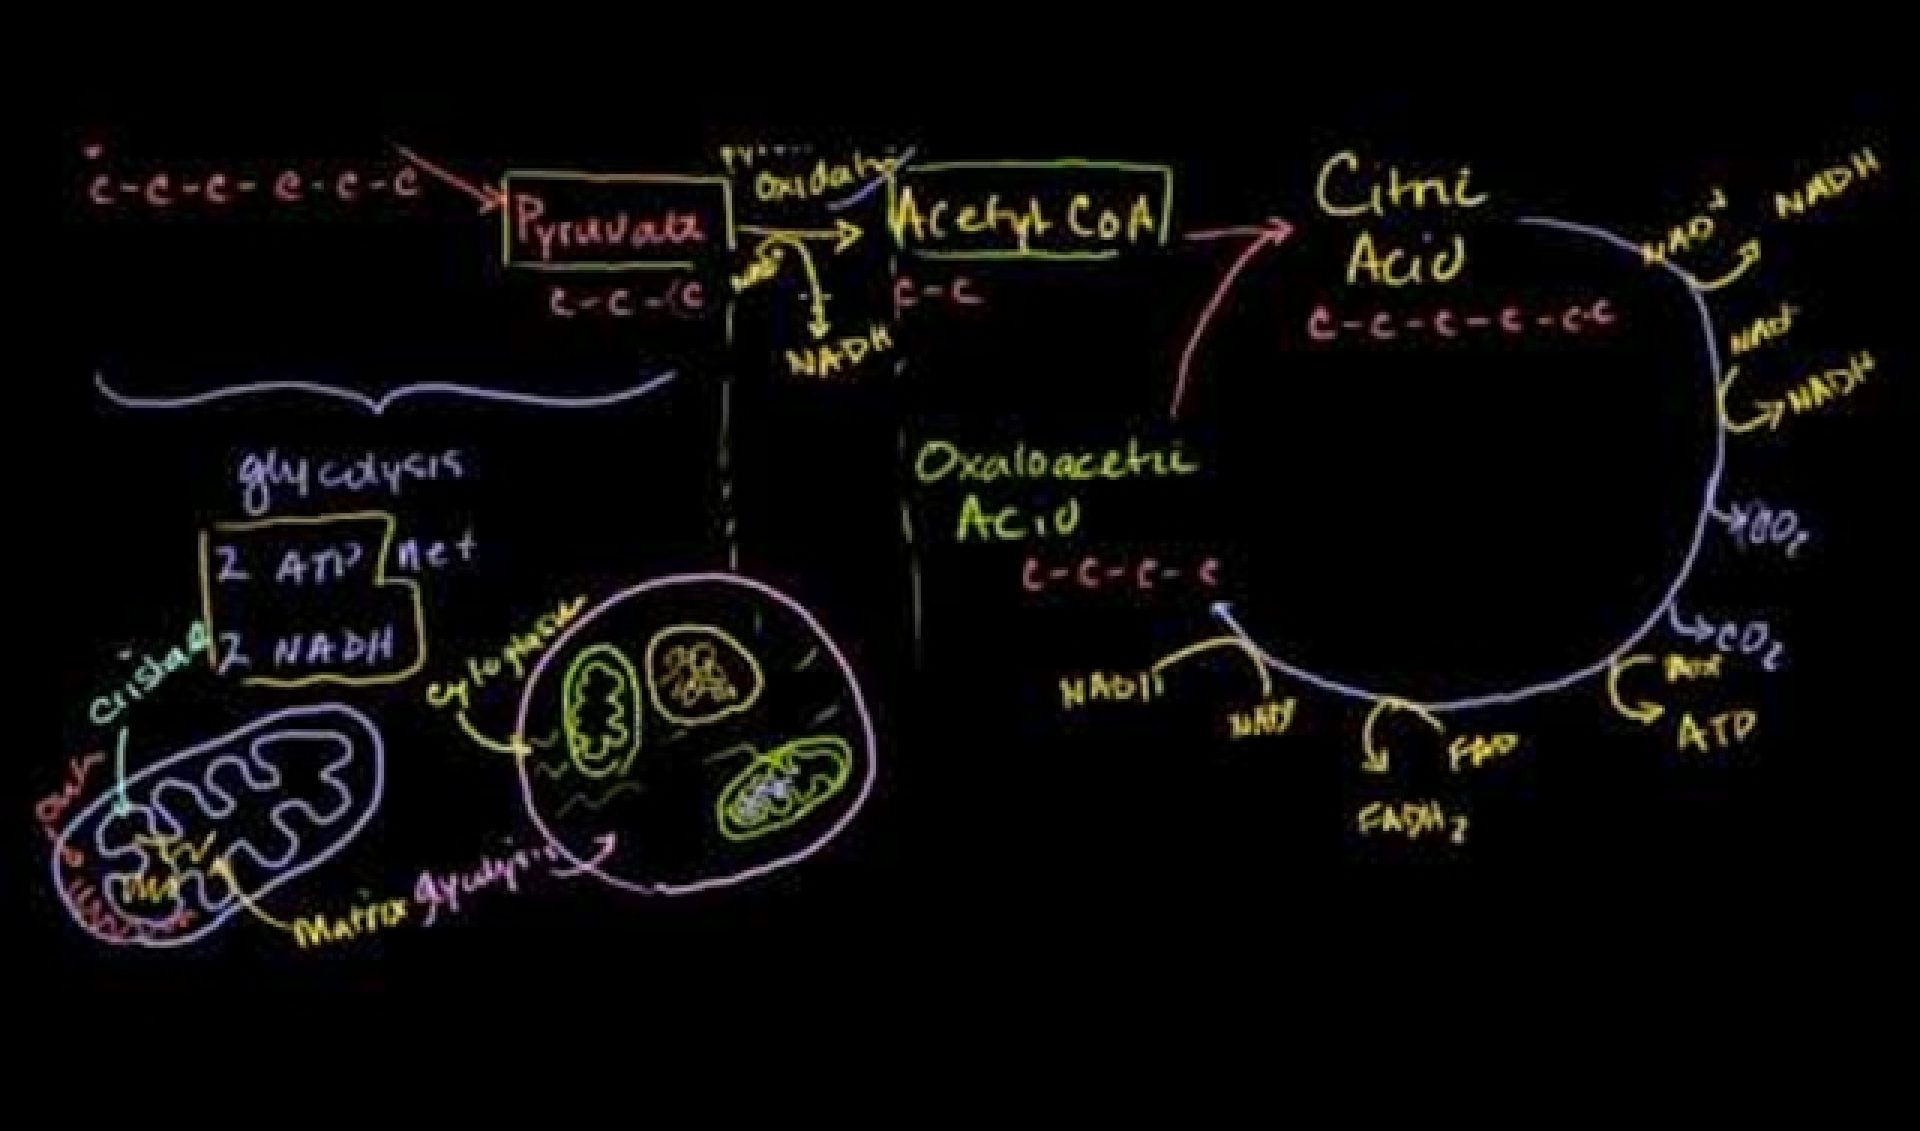 C-C-C-C-C-C
Pyruvate
C-C-C
Oxidat
NADH
Acetyl CoA
C-C
Citric
Acid
C-C-C-C-C-C
NAD+
NADH
NAD+
NADH
CO2
CO2
ATP
FAD
FADH2
NAD+
NADH
Oxaloacetic
Acid
C-C-C-C
glycolysis
2 ATP net
2 NADH
Cristae
Out
Matrix
Cytoplasm
glycolysis